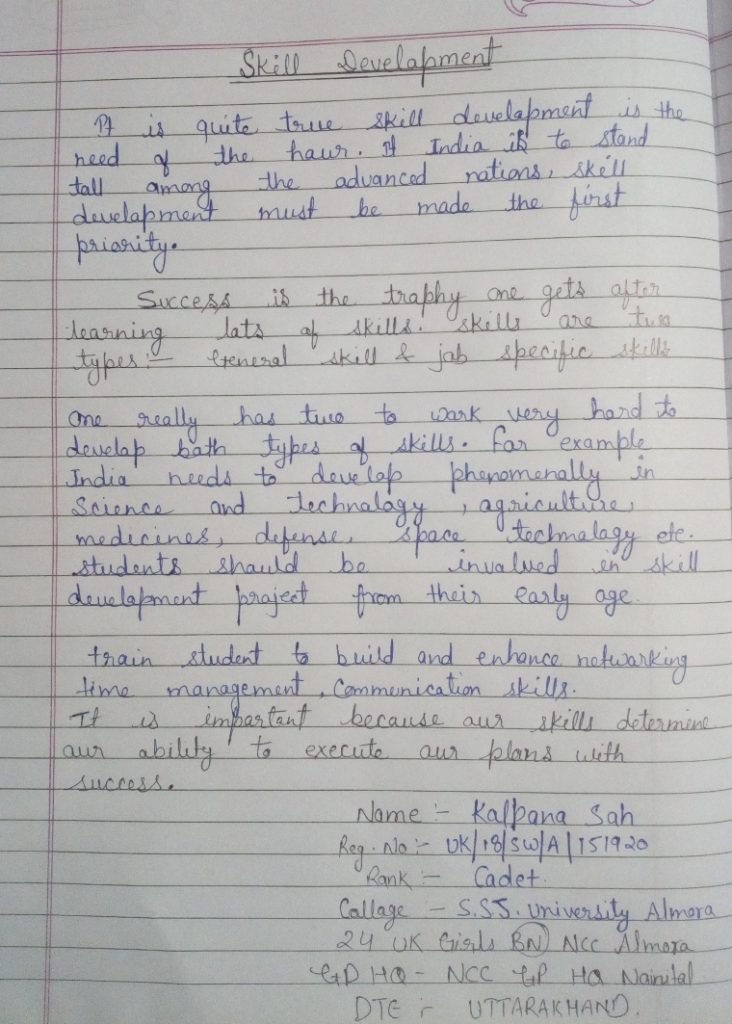 Skill Development
It is quite true skill development is the
need of the hour. If India is to stand
tall among the advanced nations, skill
development must be made the first
priority.
Success is the trophy one gets after
learning lots of skills. skills are two
types :- General skill & job specific skills
one really has two to work very hard to
develop both types of skills. For example
India needs to develop phenomenally in
Science and technology , agriculture,
medicines, defense, space technology etc.
students should be involved in skill
development project from their early age.
train student to build and enhance networking
time management, Communication skills.
It is important because our skills determine
our ability to execute our plans with
success.
Name :- Kalpana Sah
Reg. No :- UK/18/SW/A/151920
Rank :- Cadet.
Collage - S.S.J. University Almora
24 UK Girls BN NCC Almora
GP HQ - NCC GP HQ Nainital
DTE :- UTTARAKHAND.